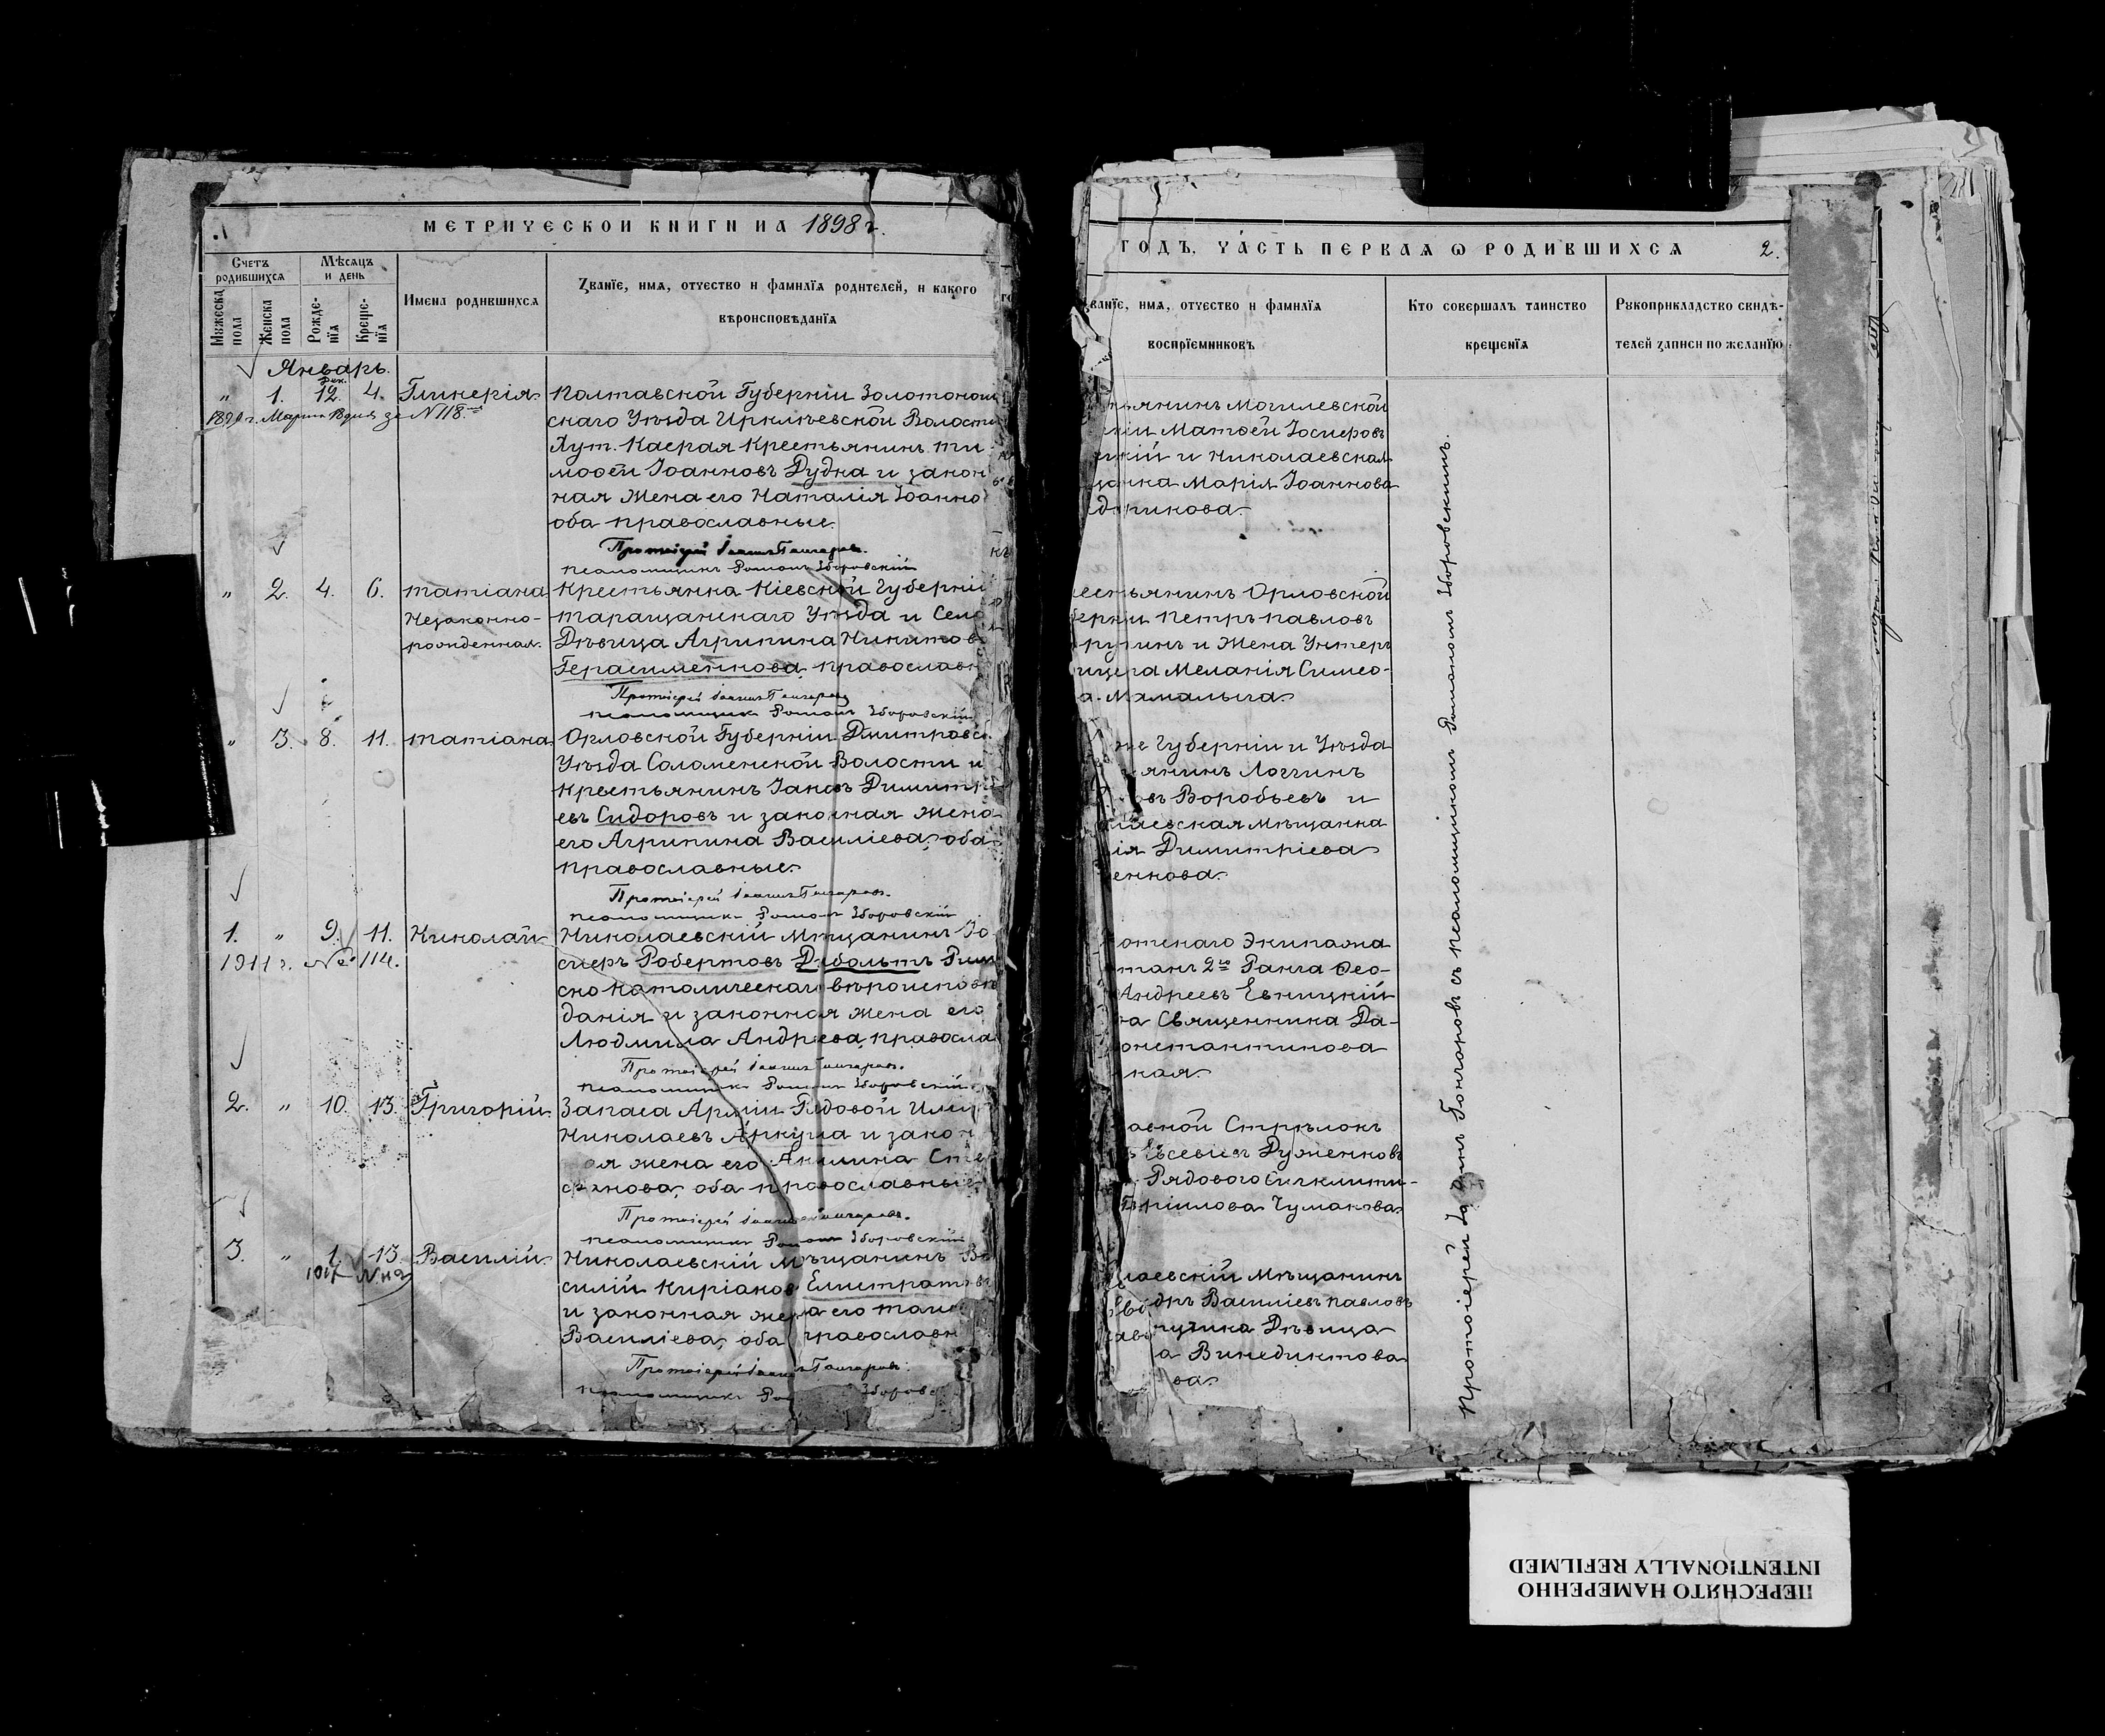 МЕТРИЧЕСКОИ КНИГИ НА 1898 г.
Счетъ родившихся
Мѣсяцъ и день
Имена родившихся
Званіе, имя, отчество и фамилія родителей, и какого
вѣроисповѣданія
Мужеска пола
Женска пола
Рожде-нія
Креще-нія
Январь.
" 1. Дек. 12. 4. Гликерія
Полтавской Губерніи Золотонош
скаго Уѣзда Ирклѣевской Волости
Хут. Крестьянинъ Ти
мофей Іоанновъ Дудка и закон
ная Жена его Наталія Іоанно
оба православные.
Протоіерей Іоаннъ Гончаровъ.
Псаломщикъ Романъ Зборовскій
" 2. 4. 6. Татіана
Незаконно-
рожденная.
Крестьянка Кіевской Губерніи
Таращанскаго Уѣзда и Села
Дѣвица Агрипина Никитов
Герасименкова, православн
Протоіерей Іоаннъ Гончаровъ
Псаломщикъ Романъ Зборовскій
" 3. 8. 11. Татіана
Орловской Губерніи Дмитровс
Уѣзда Соломенской Волости и
Крестьянинъ Іаковъ Димитрі
евъ Сидоровъ и законная Жена
его Агрипина Василіева, оба
православные.
Протоіерей Іоаннъ Гончаровъ.
Псаломщикъ Романъ Зборовскій
1. " 9. 11. Николай
1911 г. № 114.
Николаевскій Мѣщанинъ Іо
сифъ Робертовъ Дибольтъ Рим
ско Католическаго вѣроисповѣ
данія и законная жена его
Людмила Андреева, правосла
Протоіерей Іоаннъ Гончаровъ.
Псаломщикъ Романъ Зборовскій
2. " 10. 13. Григорій
Запаса Арміи Рядовой
Николаевъ Аркуша и закон
ая жена его Акилина Сте
фанова, оба православные
Протоіерей Іоаннъ Гончаровъ.
Псаломщикъ Романъ Зборовскій
3. " 1. 13. Василій
Николаевскій Мѣщанинъ Ва
силій Киріаковъ Елистратовъ
и законная жена его
Василіева, оба православн
Протоіерей Іоаннъ Гончаровъ.
Псаломщикъ Зборовс
ГОДЪ, ЧАСТЬ ПЕРВАЯ Ѡ РОДИВШИХСЯ 2.
Званіе, имя, отчество и фамилія
воспріемниковъ
Кто совершалъ таинство
крещенія
Рукоприкладство свидѣ-
телей записи по желанію
янинъ Могилевской
ніи Матѳей Іосифовъ
кій и Николаевская
щанка Марія Іоаннова
рикова.
рестьянинъ Орловской
берніи Петръ Павловъ
и Жена Унтеръ
ицера Меланія Симео-
а Мамалыга.
же Губерніи и Уѣзда
янинъ Логгинъ
овъ Воробьевъ и
лаевская Мѣщанка
ія Димитріева
енкова.
отскаго Экипажа
танъ 2го Ранга Ѳео-
Андреевъ Евницкій
ра Священника Да-
онстантинова
кая.
авной Стрѣлокъ
Евсевіевъ Дуженковъ
Рядового
Чумакова
лаевскій Мѣщанинъ
дръ Василіевъ Павловъ
Дѣвица
а Винедиктова
ва.
Протоіерей Іоаннъ Гончаровъ съ псаломщикомъ Романомъ Зборовскимъ.
ПЕРЕСНЯТО НАМЕРЕННО
INTENTIONALLY REFILMED